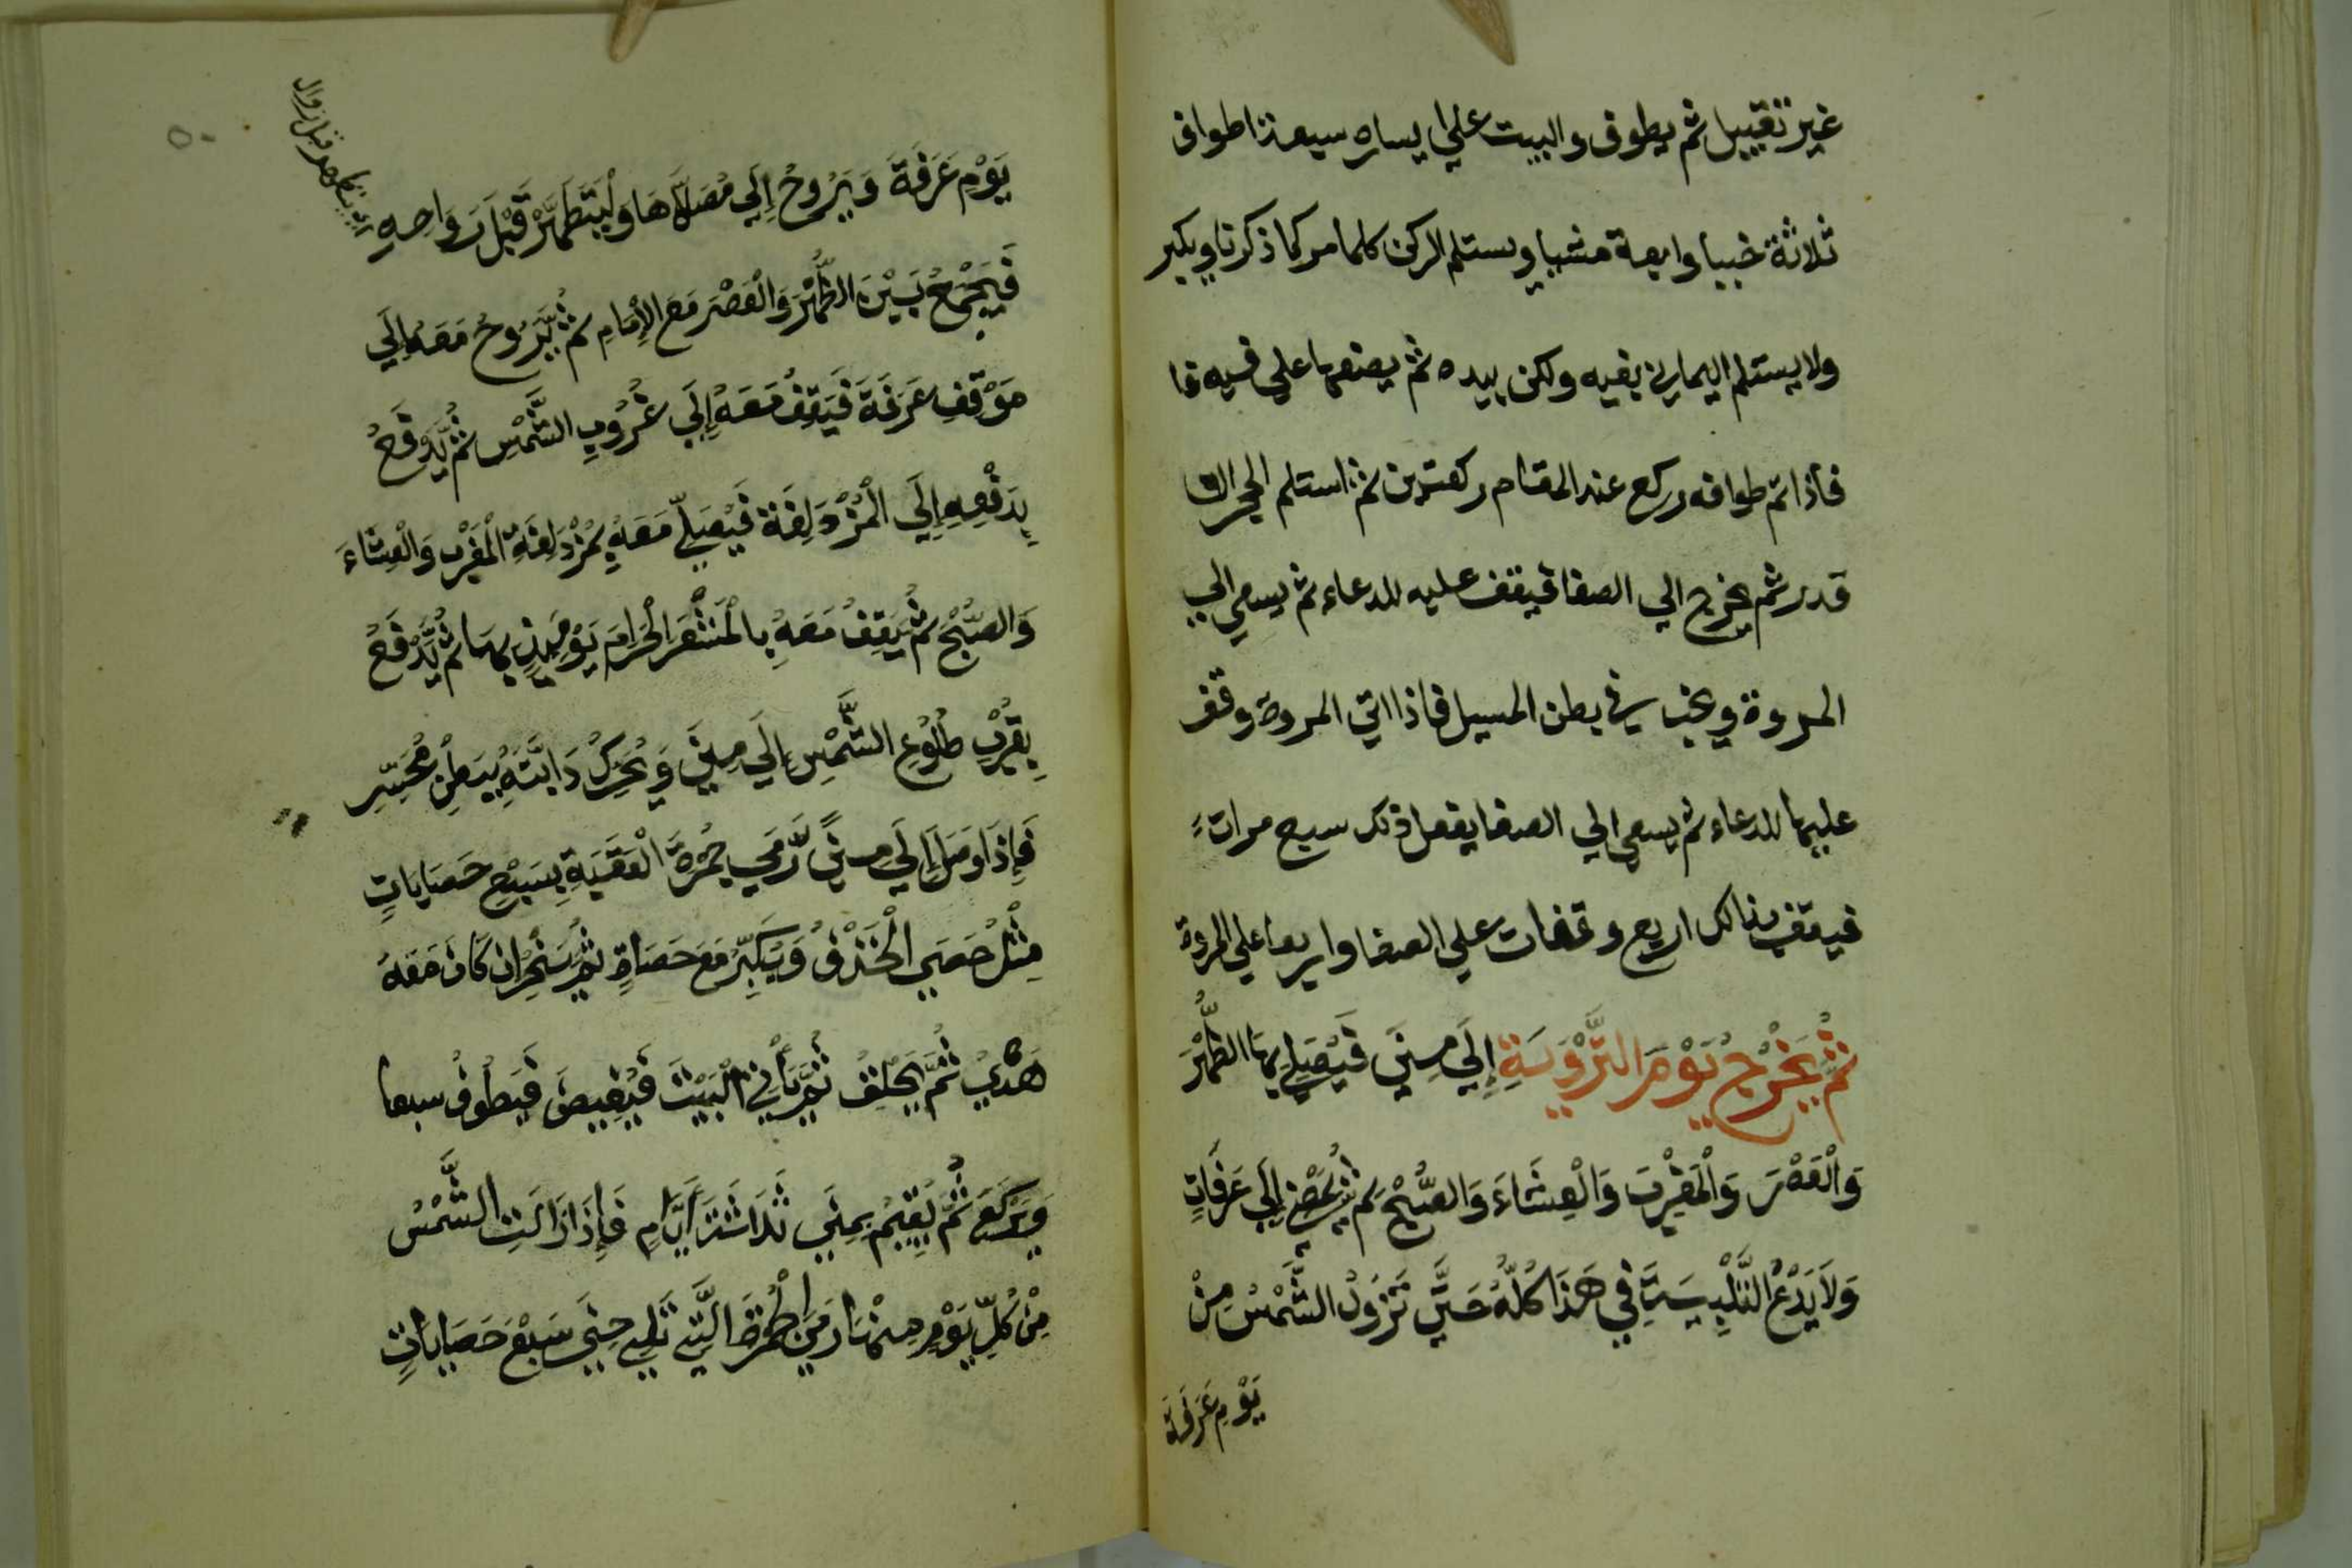 غير تقبيل ثم يطوف والبيت علي يساره سبعة اطواف
ثلاثة خببا واربعة مشيا ويستلم الركن كلما مر كما ذكرنا ويكبر
ولا يستلم اليماني بفيه ولكن بيده ثم يضعها علي فيه
فاذا تم طوافه وركع عند المقام ركعتين ثم استلم الحجر ان
قدر ثم يخرج الي الصفا فيقف عليه للدعاء ثم يسعي الي
المروة ويخب في بطن المسيل فاذا اتي المروة وقف
عليها للدعاء ثم يسعي الي الصفا يفعل ذلك سبع مرات
فيقف بذالك اربع وقفات علي الصفا واربعا علي المروة
ثُمَّ يَخْرُجُ يَوْمَ التَّرْوِيَةِ إِلَي مِنَي فَيُصَلِّي بِهَا الظُّهْرَ
وَالْعَصْرَ وَالْمَغْرِبَ وَالْعِشَاءَ وَالصُّبْحَ ثُمَّ يَمْضِي إِلَي عَرَفَاتٍ
وَلَا يَدَعُ التَّلْبِيَةَ فِي هَذَا كُلِّهُ حَتَّي تَزُولَ الشَّمْسُ مِنْ
يَوْمِ عَرَفَةَ
يَوْمِ عَرَفَةَ وَيَرُوحُ إِلَي مُصَلَّاهَا وَلْيَتَطَهَّرْ قَبْلَ رَوَاحِهِ
فَيَجْمَعُ بَيْنَ الظُّهْرَ وَالْعَصْرَ مَعَ الإِمَامِ ثُمَّ يَرُوحُ مَعَهُ إِلَي
مَوْقِفِ عَرَفَةَ فَيَقِفُ مَعَهُ إِلَي غُرُوبِ الشَّمْسِ ثُمَّ يَدْفَعُ
بِدَفْعِهِ إِلَي الْمُزْدَلِفَةَ فَيُصَلِّي مَعَهُ بِمُزْدَلِفَةِ الْمَغْرِبَ وَالْعِشَاءَ
وَالصُّبْحَ ثُمَّ يَقِفُ مَعَهُ بِالْمَشْعَرِ الْحَرَامِ يَوْمَيِذٍ بِهَا ثُمَّ يَدْفَعُ
بِقُرْبِ طُلُوعِ الشَّمْسِ إِلَي مِنَي وَيُحَرِّكُ دَابَّتَهُ بِبَطْنِ مُحَسِّرِ
فَإِذَا وَصَلَ إِلَي مِنًي رَمَي جَمْرَةَ الْعَقَبَةِ بِسَبْعِ حَصَايَاتٍ
مِثْلُ حَصَي الْخَذْفِ وَيُكَبِّرُ مَعَ حَصَاةٍ ثُمَّ يَنْحَرُ ان كَانَ مَعَهُ
هَدْيٌ ثُمَّ يَحْلِقُ ثُمَّ يَأْتِي الْبَيْتَ فَيُفِيضُ فَيَطُوفُ سبعا
وَيَرْكَعُ ثُمَّ يُقِيمُ بِمِنَي ثَلَاثَةَ أَيَّامٍ فَإِذَا زَالَتِ الشَّمْسُ
مِنْ كُلِّ يَوْمٍ مِنْهَا رَمَي الْجَمْرَةَ الَّتِي تَلِي مِنَي سَبْعَ حَصَايَاتٍ